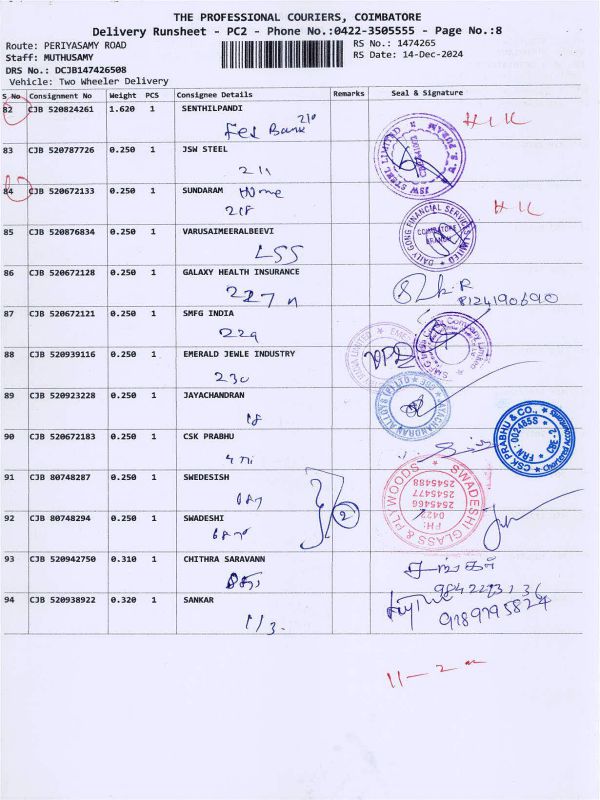 THE PROFESSIONAL COURIERS, COIMBATORE
Delivery Runsheet - PC2 - Phone No.:0422-3505555 - Page No.:8
Route: PERIYASAMY ROAD
RS No.: 1474265
Staff: MUTHUSAMY
RS Date: 14-Dec-2024
DRS No.: DCJB147426508
Vehicle: Two Wheeler Delivery
S No Consignment No Weight PCS Consignee Details Remarks Seal & Signature
82 CJB 520824261 1.620 1 SENTHILPANDI
Fed Bank 210
83 CJB 520787726 0.250 1 JSW STEEL
211
JSW STEEL LIMITED
84 CJB 520672133 0.250 1 SUNDARAM Home
218
85 CJB 520876834 0.250 1 VARUSAIMEERALBEEVI
LSS
DAILY GONG FINANCIAL SERVICES LIMITED
COIMBATORE
BRANCH
86 CJB 520672128 0.250 1 GALAXY HEALTH INSURANCE
227
8124190690
87 CJB 520672121 0.250 1 SMFG INDIA
229
88 CJB 520939116 0.250 1 EMERALD JEWLE INDUSTRY
230
89 CJB 520923228 0.250 1 JAYACHANDRAN
JAYACHANDRAN ALLOYS (P) LTD
90 CJB 520672183 0.250 1 CSK PRABHU
CSK PRABHU & CO.,
FRN: 002485S
CBE-2
Chartered Accountants
91 CJB 80748287 0.250 1 SWEDESISH
92 CJB 80748294 0.250 1 SWADESHI
2
SWADESHI GLASS & PLYWOODS
PH:
0422
2545466
2545477
2545488
93 CJB 520942750 0.310 1 CHITHRA SARAVANN
94 CJB 520938922 0.320 1 SANKAR
113
9189795824
11-2